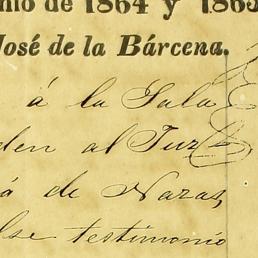 nio de 1864 y 1865
José de la Bárcena.
á la Sala
den al Juz
á de Nazas,
lse testimonio